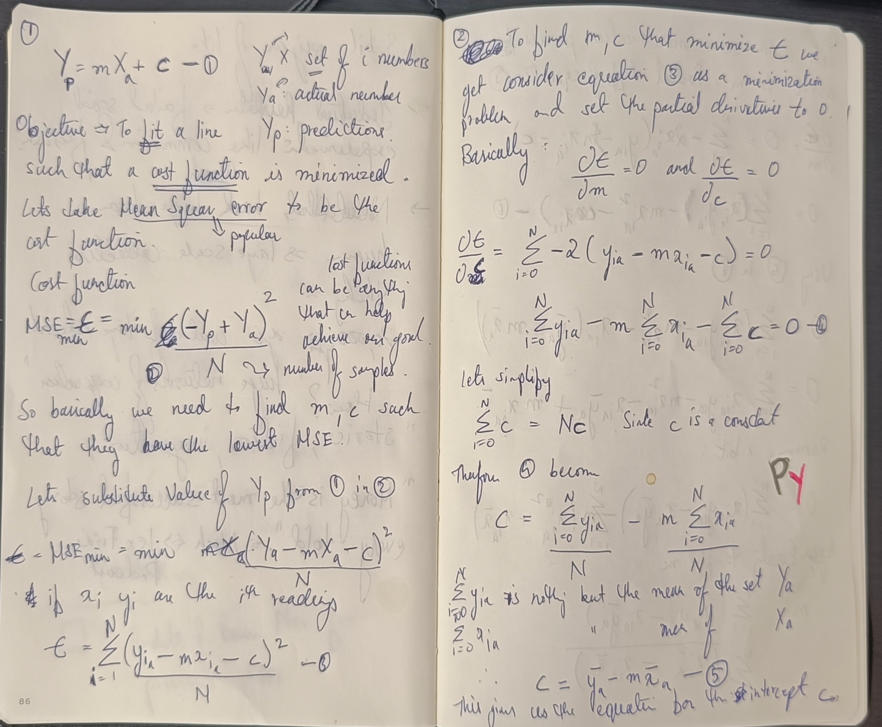 ①
Yp = mXa + c - ①
Ya, X set of i numbers
Ya : actual number
Yp : predictions.
Objective => To fit a line
such that a cost function is minimized.
Lets take Mean Square error to be the
cost function. popular
Cost function
MSE min = E = min Σ(-Yp + Ya)² / N
②
cost functions
can be anything
that can help
achieve our goal.
N → number of samples.
So basically we need to find m, c such
that they have the lowest MSE!
Lets substitute value of Yp from ① in ②
E = MSE min = min (Ya - mXa - c)² / N
if xi yi are the ith readings
E = Σ_{i=1}^{N} (yia - mxia - c)² / N - ③
86
②
To find m, c that minimize E we
get consider equation ③ as a minimization
problem and set the partial derivatives to 0.
Basically :
∂E/∂m = 0 and ∂E/∂c = 0
∂E/∂c = Σ_{i=0}^{N} -2(yia - mxia - c) = 0
Σ_{i=0}^{N} yia - m Σ_{i=0}^{N} xia - Σ_{i=0}^{N} c = 0 - ④
lets simplify
Σ_{i=0}^{N} c = Nc Since c is a constat
Therfore ④ become
PY
C = Σ_{i=0}^{N} yia / N - m Σ_{i=0}^{N} xia / N
Σ_{i=0}^{N} yia is nothing but the mean of the set Ya
Σ_{i=0}^{N} xia " mean of Xa
∴ c = ȳa - m x̄a - ⑤
This gives us the equation for the intercept c